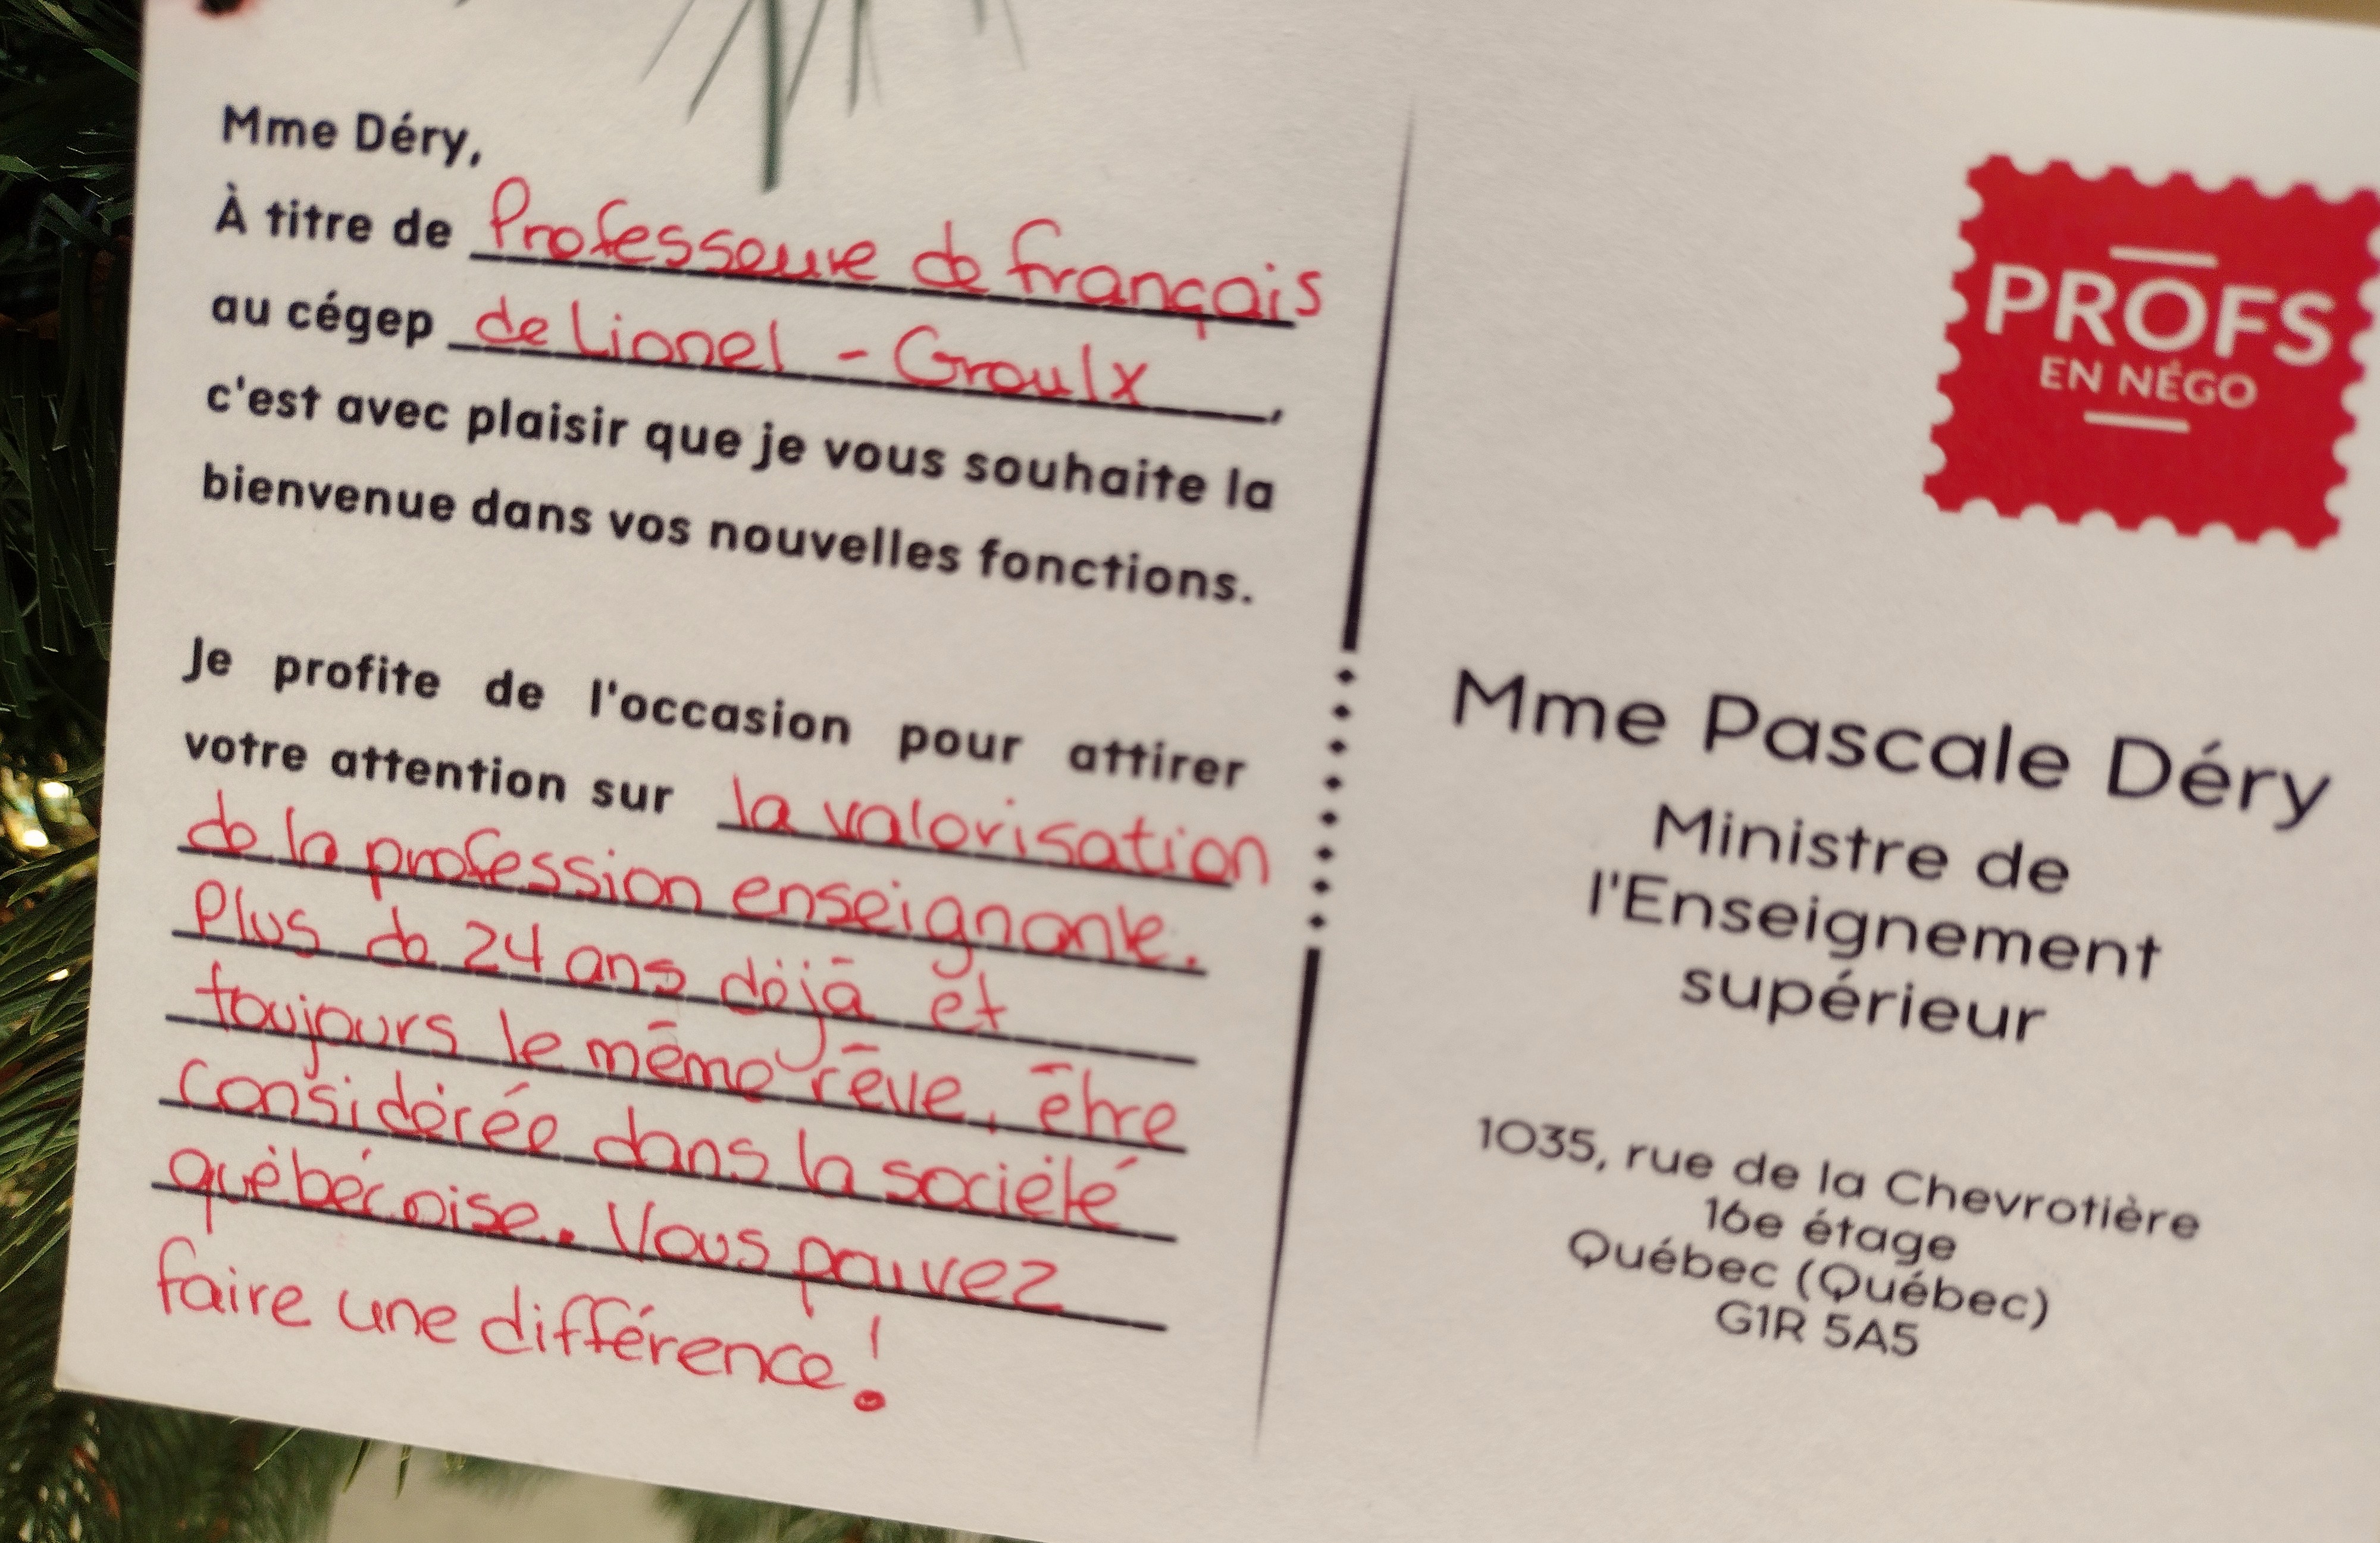 Mme Déry,
À titre de Professeure de français
au cégep de Lionel-Groulx,
c'est avec plaisir que je vous souhaite la
bienvenue dans vos nouvelles fonctions.
Je profite de l'occasion pour attirer
votre attention sur la valorisation
de la profession enseignante.
Plus de 24 ans déjà et
toujours le même rêve, être
considérée dans la société
québécoise. Vous pouvez
faire une différence!
PROFS
EN NÉGO
Mme Pascale Déry
Ministre de
l'Enseignement
supérieur
1035, rue de la Chevrotière
16e étage
Québec (Québec)
G1R 5A5